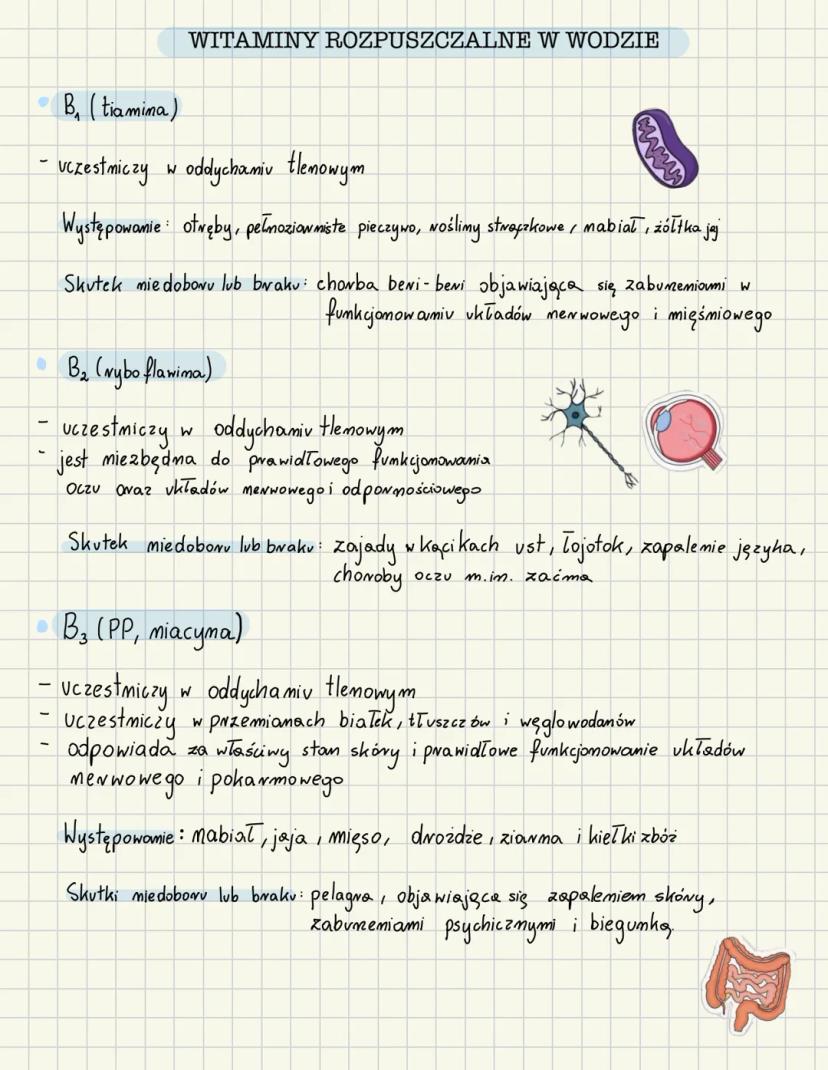 WITAMINY ROZPUSZCZALNE W WODZIE
B₁ (tiamina)
- uczestniczy w oddychaniu tlenowym
Występowanie: otręby, pełnoziarniste pieczywo, rośliny strączkowe, nabiał, żółtka jaj
Skutek niedoboru lub braku: choroba beri-beri objawiająca się zaburzeniami w
funkcjonowaniu układów nerwowego i mięśniowego
B₂ (ryboflawina)
- uczestniczy w oddychaniu tlenowym
- jest niezbędna do prawidłowego funkcjonowania
oczu oraz układów nerwowego i odpornościowego
Skutek niedoboru lub braku: zajady w kącikach ust, łojotok, zapalenie języka,
choroby oczu m.in. zaćma
B₃ (PP, niacyna)
- uczestniczy w oddychaniu tlenowym
- uczestniczy w przemianach białek, tłuszczów i węglowodanów
- odpowiada za właściwy stan skóry i prawidłowe funkcjonowanie układów
nerwowego i pokarmowego
Występowanie: nabiał, jaja, mięso, drożdże, ziarna i kiełki zbóż
Skutki niedoboru lub braku: pelagra, objawiająca się zapaleniem skóry,
zaburzeniami psychicznymi i biegunką.